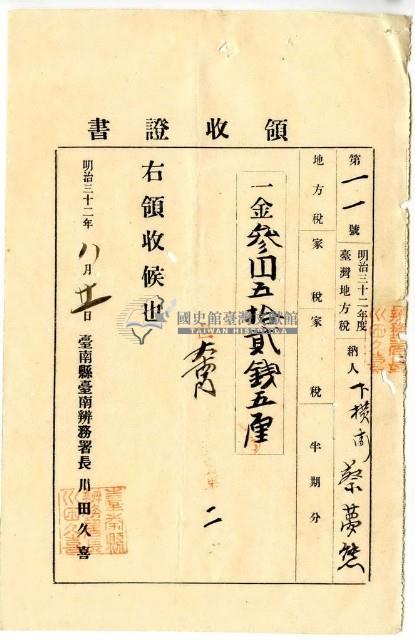 領收證書
第一一號
明治三十二年度
臺灣地方稅
納人 下橫街 蔡夢熊
地方稅家稅家稅半期分
一金參円五拾貳錢五厘
二
右領收候也
明治三十二年八月廿一日
臺南縣臺南辨務署長 川田久喜
國史館臺灣文獻館
TAIWAN HISTORICA